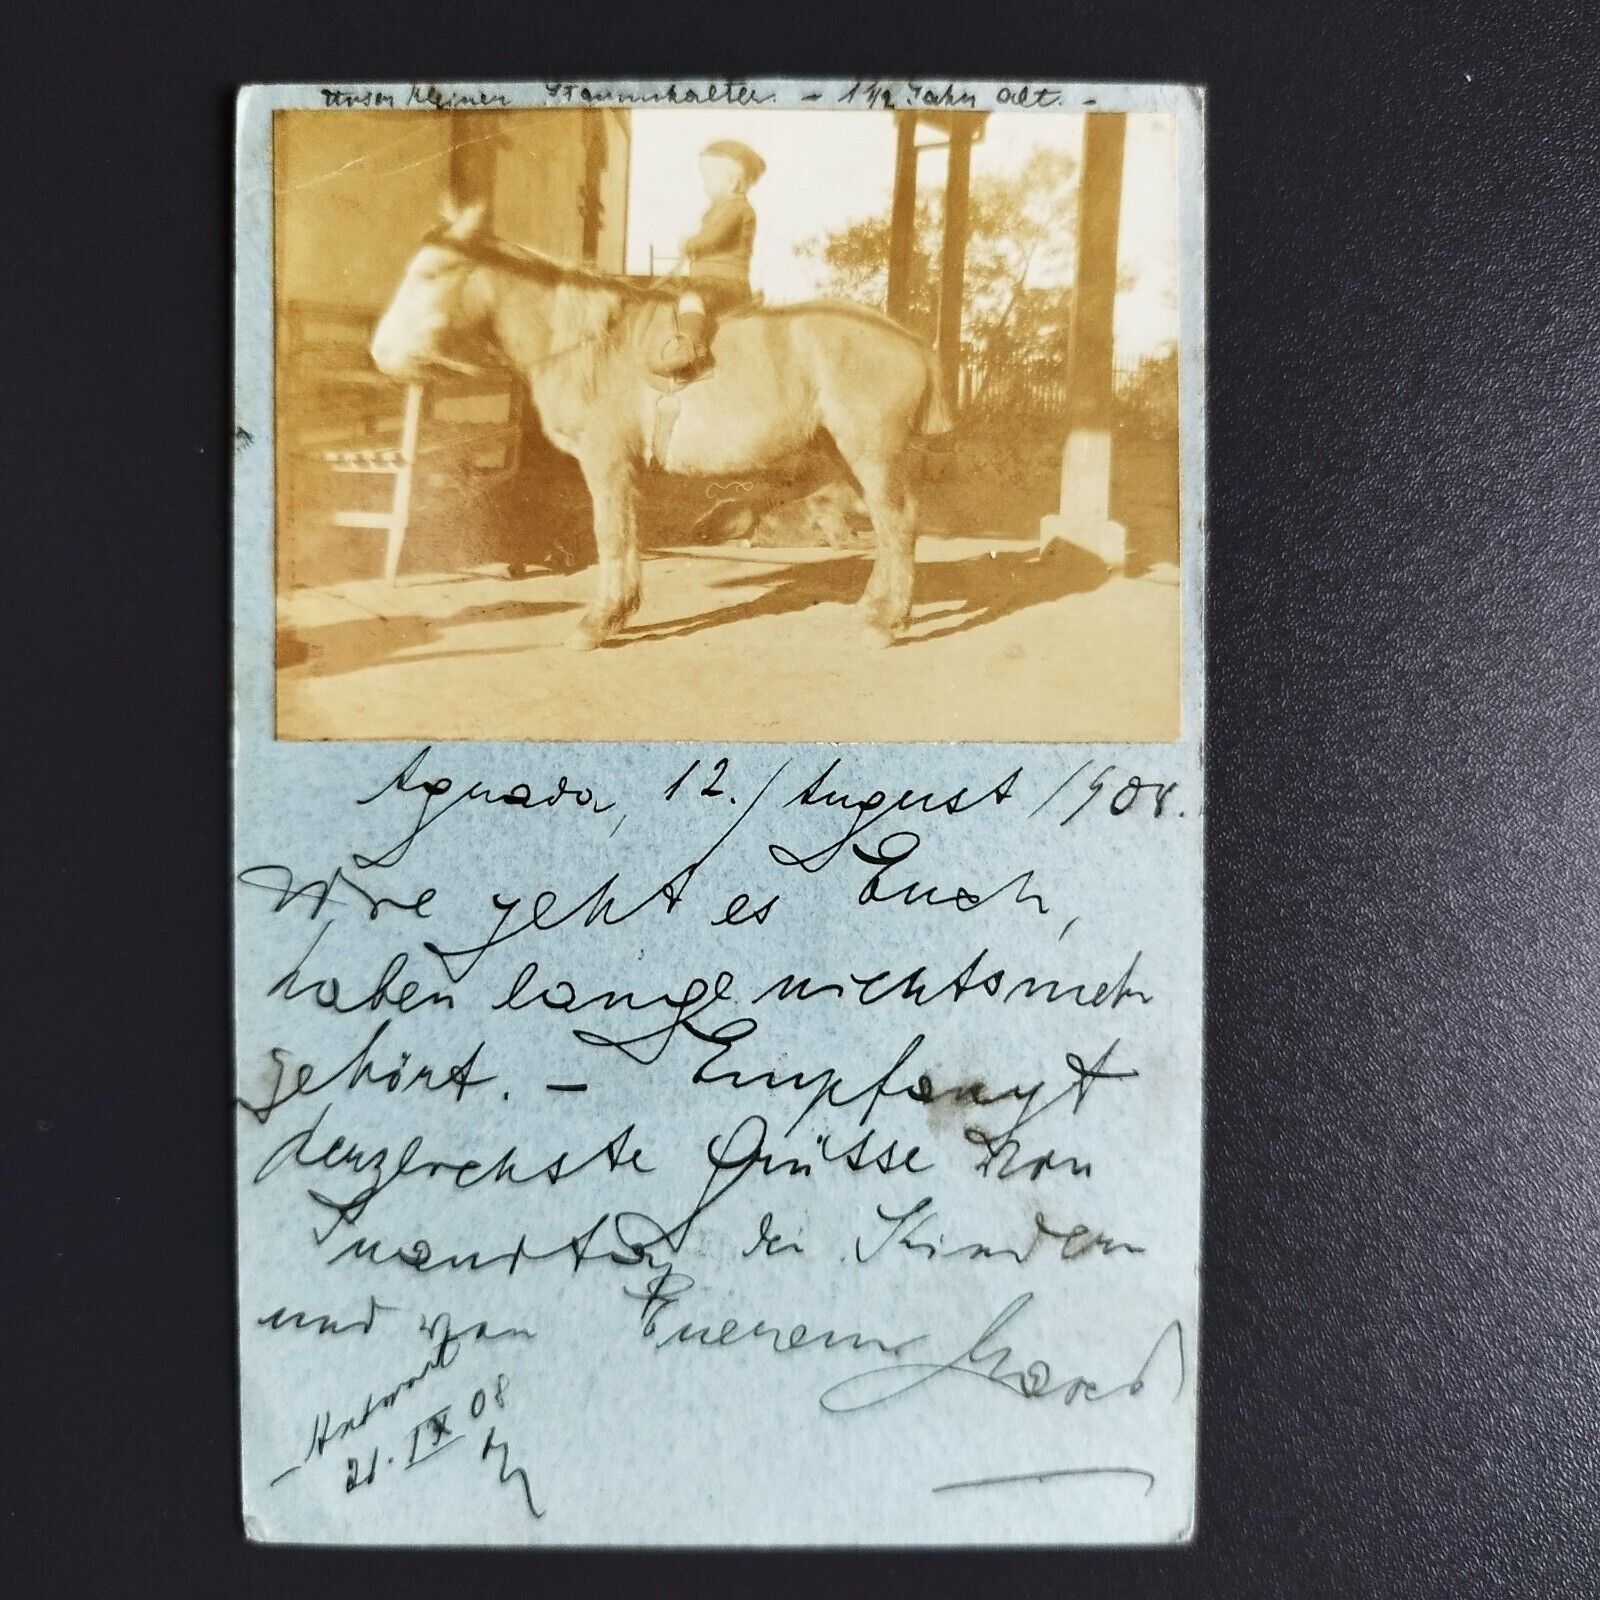 Unser kleiner Stammhalter. – 1 1/2 Jahr alt. –
Aguada, 12. August 1908.
Wie geht es Euch,
haben lange nichts mehr
gehört. – Empfangt
herzlichste Grüsse von
den Kindern
und von Euerem
Antwort
21. IX 08